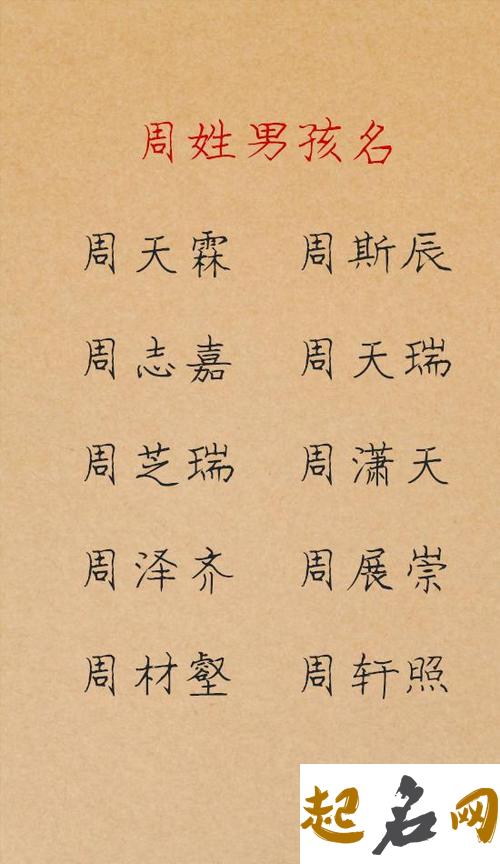 周姓男孩名
周天霖 周斯辰
周志嘉 周天瑞
周芝瑞 周潇天
周泽齐 周展崇
周材壑 周轩照
起名网